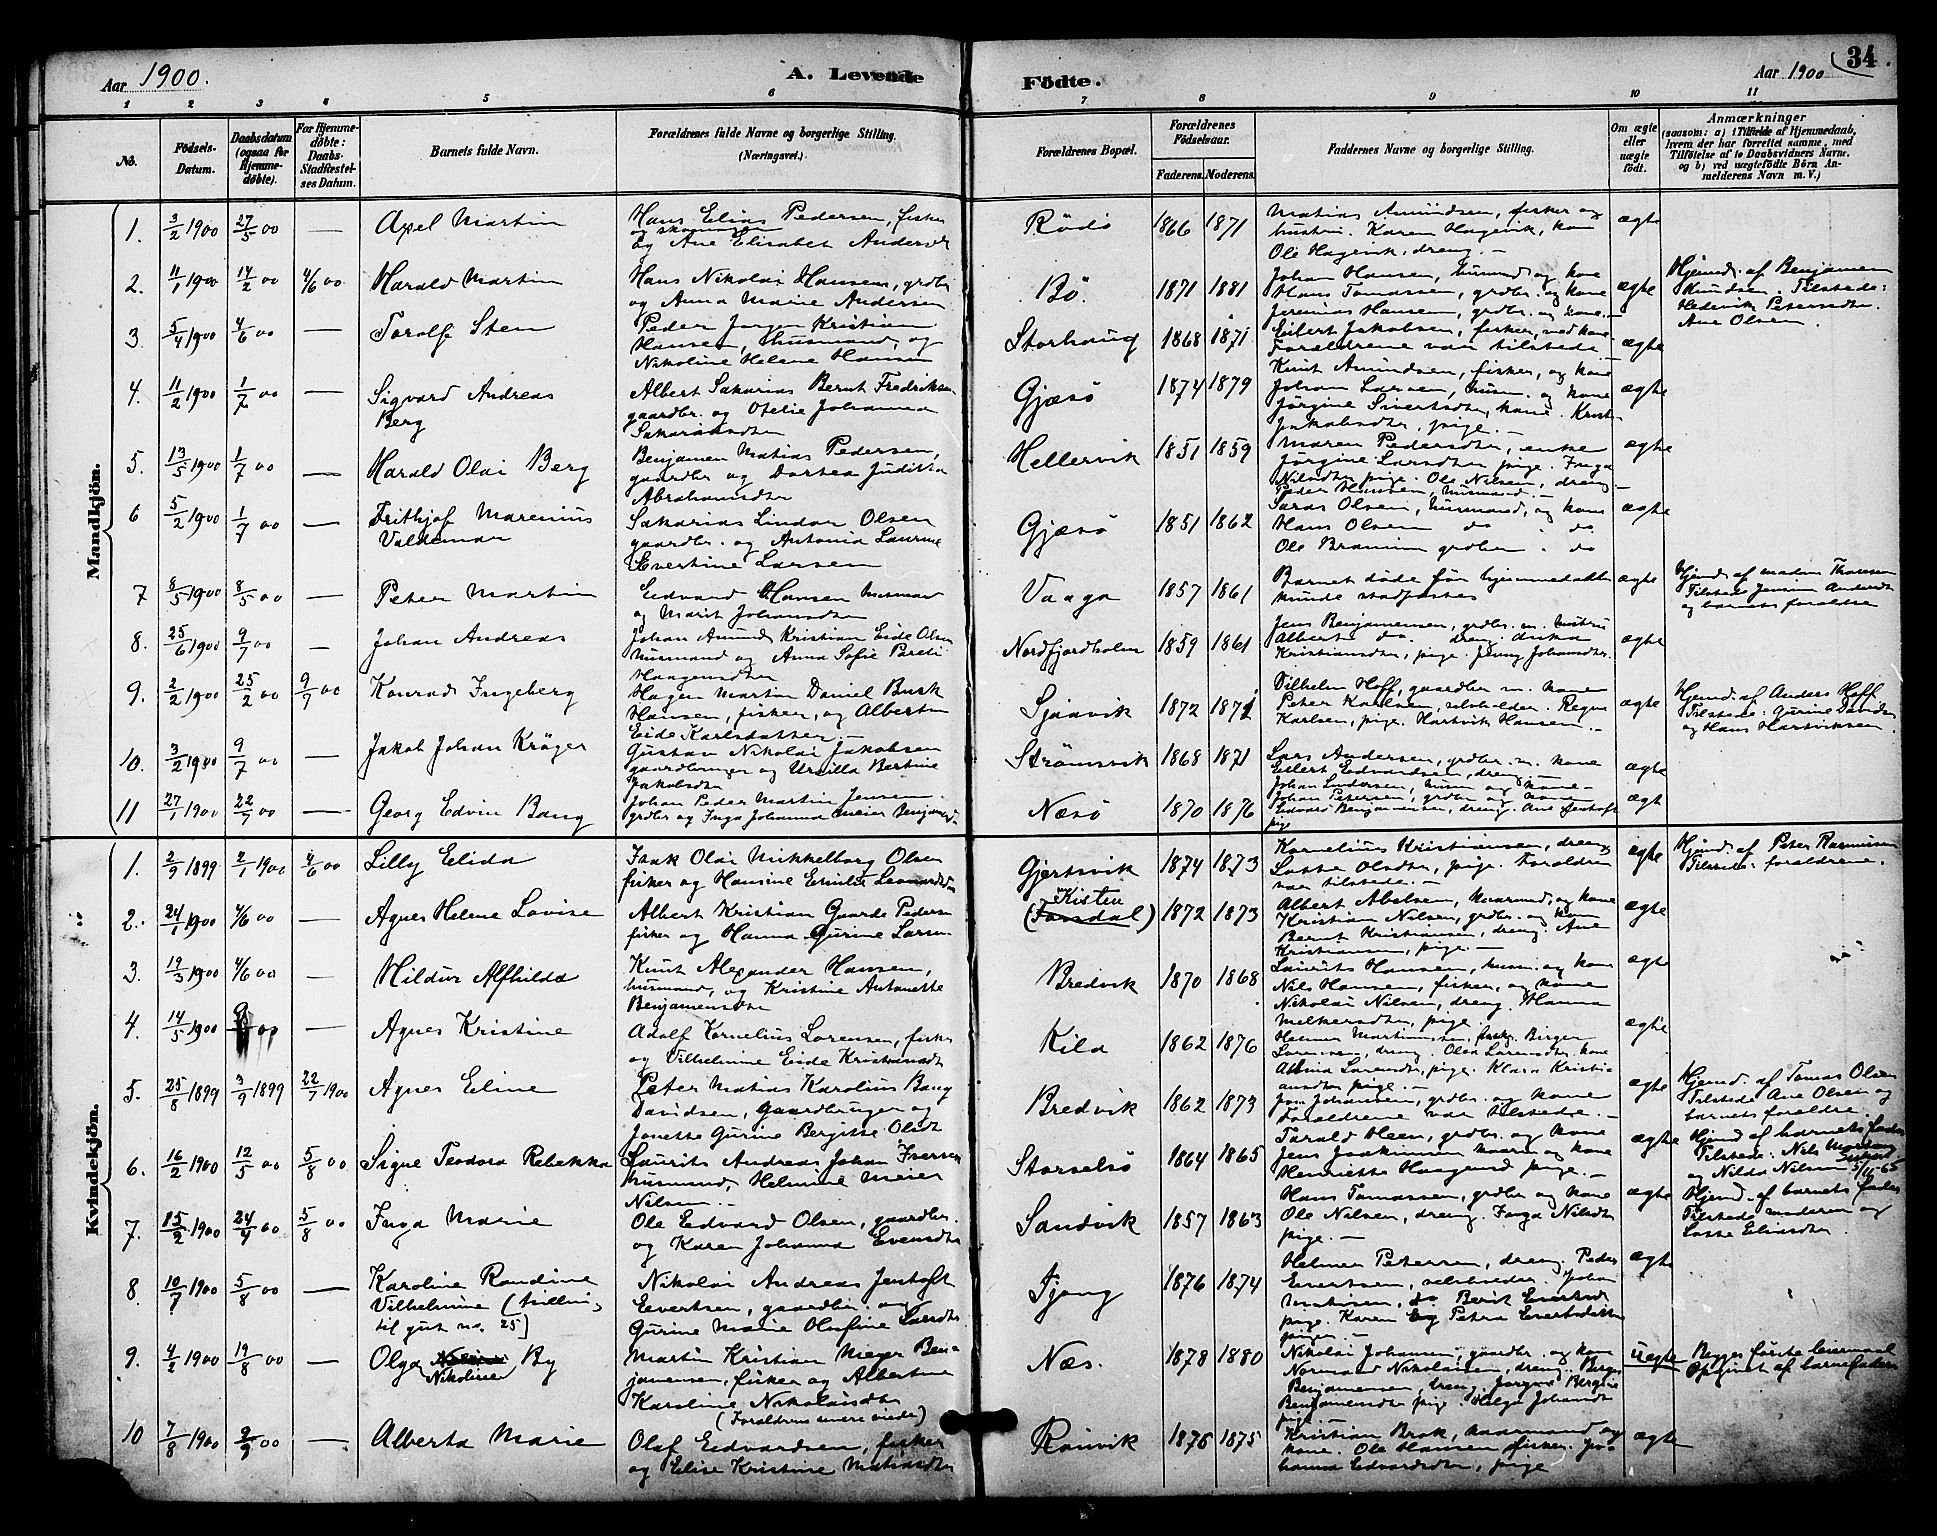 34
Aar 1900.
A. Levende Födte.
Aar 1900
1 2 3 4 5 6 7 8 9 10 11
No.
Födsels-Datum.
Daabsdatum (ogsaa for Hjemmedøbte).
For Hjemmedøbte: Daabs-Stadfæstelses Datum.
Barnets fulde Navn.
Forældrenes fulde Navne og borgerlige Stilling. (Næringsvei.)
Forældrenes Bopæl.
Forældrenes Födselsaar.
Faderens. Moderens.
Faddernes Navne og borgerlige Stilling.
Om ægte eller uægte födt.
Anmærkninger (saasom: a) i Tilfælde af Hjemmedaab, hvem der har forrettet samme, med Tilføielse af to Daabsvidners Navne. og b) ved uægtefödte Börn Anmelderens Navn m. V.)
Mandkjön.
1. 3/2 1900 27/5 00 — Axel Martin
Hans Elias Pedersen, fisker
og skomager
og Ane Elisabet Andersdtr
Rödö 1866 1871
Matias Amundsen, fisker og
hustru. Karen Hagevik, kone
Ole Hagevik, dreng. —
ægte
2. 11/1 1900 14/2 00 4/6 00 Harald Martin
Hans Nikolai Hansen, grdbr
og Anna Marie Andersen
Bö. 1871 1881
Johan Hansen, husmd og kone
Hans Tomassen, grdbr. og kone
Jeremias Hansen, grdbr. og kone. —
ægte
Hjemd. af Benjamin
Knudsen. Tilstede:
Hedevik Petersdtr
Ane Olsen.
3. 5/4 1900 4/6 00 — Torolf Sten
Peder Jørgen Kristian
Hansen, husmand, og
Nikoline Helene Hansen
Storhaug 1868 1871
Eilert Jakobsen, fisker, med kone
Forældrene var tilstede —
ægte
4. 11/2 1900 1/7 00 — Sigvard Andreas
Berg
Albert Sakarias Bernt Fredriksen
gaardbr. og Otelie Johanna
Sakariasdtr
Gjæsö 1874 1879
Knut Amundsen, fisker, og kone
Johan Larsen, husm. og kone
Jörgine Sivertsdtr, kone. Krist.
Jakobsdtr, pige. —
ægte
5. 13/5 1900 1/7 00 — Harald Olai Berg
Benjamin Matias Pedersen,
gaardbr og Dortea Judikta
Abrahamsdtr
Hellervik 1851 1859
Maren Pedersdtr, enke
Jörgine Larsdtr pige. Inga
Nilsdtr pige. Ole Nilsen, dreng —
Peder Hansen, husmand. —
ægte
6 5/2 1900 1/7 00 — Frithjof Marenius
Valdemar
Sakarias Lindor Olsen
gaardbr. og Antonia Laurine
Evertine Larsen
Gjæsö 1851 1862
Olsen, husmand, og kone
Hans Olsen do do
Ole grdbr. do
ægte
7 8/5 1900 8/5 00 — Peter Martin
Edvard Hansen husmand
og Marit Johansdtr
Vaaga 1857 1861
Barnet döde för hjemmedaaben
kunde stadfæstes
ægte
Hjemd. af madm Thoresen
Tilstede Jensine Andersdtr
og barnets forældre
8. 25/6 1900 9/7 00 — Johan Andreas
Johan Amund Kristian Eide Olsen
husmand og Anna Sofie Pareli
Haagensdtr
Nordfjordholm 1859 1861
Jens Benjaminsen, grdbr. m. hustru
Albert do. dreng.
Kristiansdtr, pige. Jenny Johansdtr.
ægte
9. 2/2 1900 25/2 00 9/7 00 Konrad Ingeberg
Hagen Martin Daniel Busk
Hansen, fisker, og Alberta
Eide Karlsdatter. —
Sjöavik 1872 1871
Vilhelm Hoff, gaardbr m. kone
Peter Karlsen, selveholder. Regine
Karlsen, pige. Hartvik Hansen. —
ægte
Hjemd. af Anders Hoff
Tilstede: Gurine Davids
og Hans Hartviksen
10. 3/2 1900 9/7 00 — Jakob Johan Kröger
Gustav Nikolai Jakobsen
gaardbruger og Ursilla Bertine
Jakobsdtr
Strömsvik 1868 1871
Lars Andersen, grdbr. m. kone
Eilert Edvardsen, dreng —
ægte
11 27/1 1900 22/7 00 — Georg Edvin Bang
Johan Peder Martin Jensen.
grdbr og Inga Johanna Meier Benjamsd.
Næsö 1870 1876
Johan Andersen, husm og kone —
Johan Petersen, grdbr og kone
Edvard Benjaminsen, dreng. Ane Jentoft
pige
ægt
Kvindekjön.
1. 2/9 1899 2/1 1900 4/6 00 Lilly Elida
Isak Olai Mikkelborg Olsen
fisker og Hansine Emilie Leonardsd
Gjertsvik 1874 1873
Kornelius Kristiansen, dreng
Lasse Olsdtr, pige. Foræld­ren
var tilstede. —
ægte
Hjemd. af Peter Rasmussen
Tilstede: forældrene.
2. 24/1 1900 4/6 00 — Agnes Helene Lovise
Albert Kristian Gaarde Pedersen
fisker og Hanna Gurine Larsen
Kisten
(Forsdal) 1872 1873
Albert Abelsen, kaarmd, og kone
Kristian Nilsen, grdbr. og kone
Bernt Kristiansen, dreng. Ane
Kristiansen, pige. —
ægte
3. 19/3 1900 4/6 00 — Hildur Alfhilda
Knut Alexander Hansen,
husmand, og Kristine Antonette
Benjaminsdtr
Bredvik 1870 1868
Laurits Hansen, husm. og kone
Nils Hansen, fisker, og kone
Nikolai Nilsen, dreng. Hanna
Melkersdtr, pige.
ægte
4. 14/5 1900 9/ 00 — Agnes Kristine
Adolf Kornelius Lorensen, fisker
og Vilhelmine Eide Kristensdt
Kila 1862 1876
Helmer Martinusen, Birger
Lorensen, dreng. Olea Larsensdtr kone
Larsensdtr, pige. Klara Kristi-
ansdtr pige. —
ægte
5. 25/8 1899 3/9 1899 22/7 1900 Agnes Eline
Peter Matias Karolius Bang
Davidsen, gaardbruger og
Jonette Gurine Bergitte Olsdt
Bredvik 1862 1873
Johansen, grdbr. og kone
Forældrene var tilstede. —
ægte
Hjemd. af Tomas Olsen
Tilstede Ane Olsen og
barnets forældre.
6. 16/2 1900 12/5 00 5/8 00 Signe Teodora Rebekka
Laurits Andreas Johan Iversen
husmand, Helmine Meier
Nilsen. —
Storselsö 1864 1865
Torald Heen, grdbr. og kone
Jens Joakimsen kaarm og kone
Henriette Haagensd pige. —
ægte
Hjemd af barnets fader
Tilstede: Nils
og Nilda Nilsen 5/11-65
7. 15/2 1900 24/4 00 5/8 00 Inga Marie
Ole Edvard Olsen, gaardbr.
og Karen Johanna Evensdtr
Sandvik 1857 1863
Hans Tomassen, grdbr og kone
Ole Nilsen, dreng. Inga Nilsdtr
pige. —
ægte
Hjemd. af barnets fader
Tilstede moderen og
Lasse Eliasdtr
8. 10/7 1900 5/8 00 — Karoline Randine
Vilhelmine (tvilling
til gut no. 25)
Nikolai Andreas Jentoft
Evertsen, gaardbr. og
Gurine Marie Olufine Larsdtr
Tjong 1876 1874
Helmer Petersen, dreng. Peder
Evertsen, selveieder. Johan
Matisen, do Berit Evertsd.
pige. Karen og Petra Evertsdatter
piger. —
ægte
9. 4/2 1900 19/8 00 — Olga Nikoline By
Martin Kristian Meyer Ben-
jaminsen, fisker og Albertine
Karoline Nikolaisdtr
(Forældrene senere viede)
Næs. 1878 1880
Nikolai Johansen, gaardbr. og kone
Normand Nikolaisen, dreng. Berge
Benjaminsen, dreng, Jørgine Bergine
Benjaminsdtr pige. Helga Johansdt
pige
uægte
Begges første leiermaal
Opgivet af barnefaderen
10 7/8 1900 2/9 00 — Alberta Marie
Olaf Edvardsen, fisker
og Elise Kristine Matiasdtr
Rönvik 1876 1875
Kristian Brok, kaarmand og
kone. Ole Hansen fisker. Jo-
hanna Edvardsdtr, pige
ægte